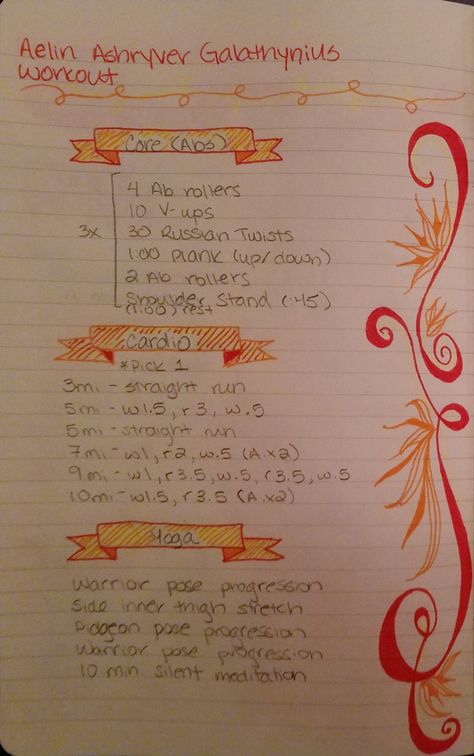 Aelin Ashryver Galathynius
Workout
Core (Abs)
4 Ab rollers
10 V-ups
3x
30 Russian Twists
1:00 Plank (up/down)
2 Ab rollers
Shoulder Stand (:45)
(1:00) rest
Cardio
*Pick 1
3mi - straight run
5mi - w1.5, r3, w.5
5mi - straight run
7mi - w1, r2, w.5 (A.x2)
9mi - w1, r3.5, w.5, r3.5, w.5
10mi - w1.5, r3.5 (A.x2)
Yoga
Warrior pose progression
Side inner thigh stretch
Pidgeon pose progression
Warrior pose progression
10 min silent meditation